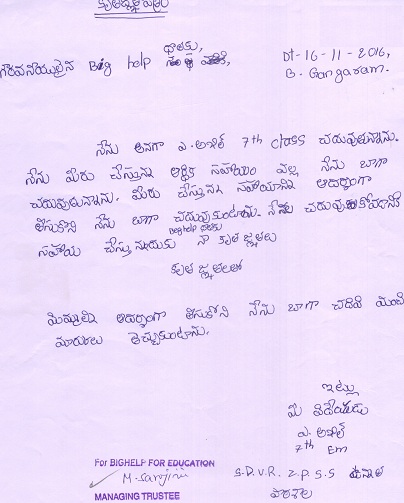 కృతజ్ఞతాపత్రం
Dt-16-11-2016,
B. Gangaram.
దాతకు,
గౌరవనీయులైన Big help
నేను అనగా ఎ.అఖిల్ 7th class చదువుతున్నాను.
నేను మీరు చేస్తున్న ఆర్థిక సహాయం వల్ల నేను బాగా
చదువుతున్నాను. మీరు చేస్తున్న సహాయాన్ని ఆదర్శంగా
తీసుకొని నేను బాగా చదువుకుంటాను. నేను చదువుకోవడానికి
సహాయ చేస్తున్నందుకు Beghelp దాతకు నా కృతజ్ఞతలు
కృతజ్ఞతలతో
మిమ్మల్ని ఆదర్శంగా తీసుకోని నేను బాగా చదివి మంచి
మార్కులు తెచ్చుకుంటాను.
ఇట్లు
మీ విదేయుడు
ఎ. అఖిల్
7th Em
S.D.V.R. Z.P.S.S ఉన్నత
పాఠశాల
For BIGHELP FOR EDUCATION
M. Sanjini
MANAGING TRUSTEE